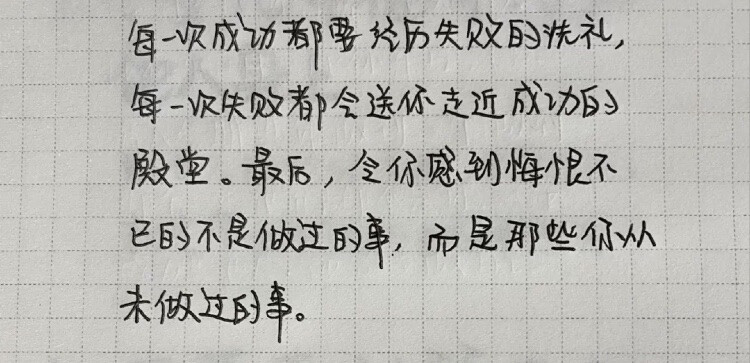 每一次成功都要经历失败的洗礼,
每一次失败都会送你走近成功的
殿堂。最后,令你感到悔恨不
已的不是做过的事,而是那些你从
未做过的事。